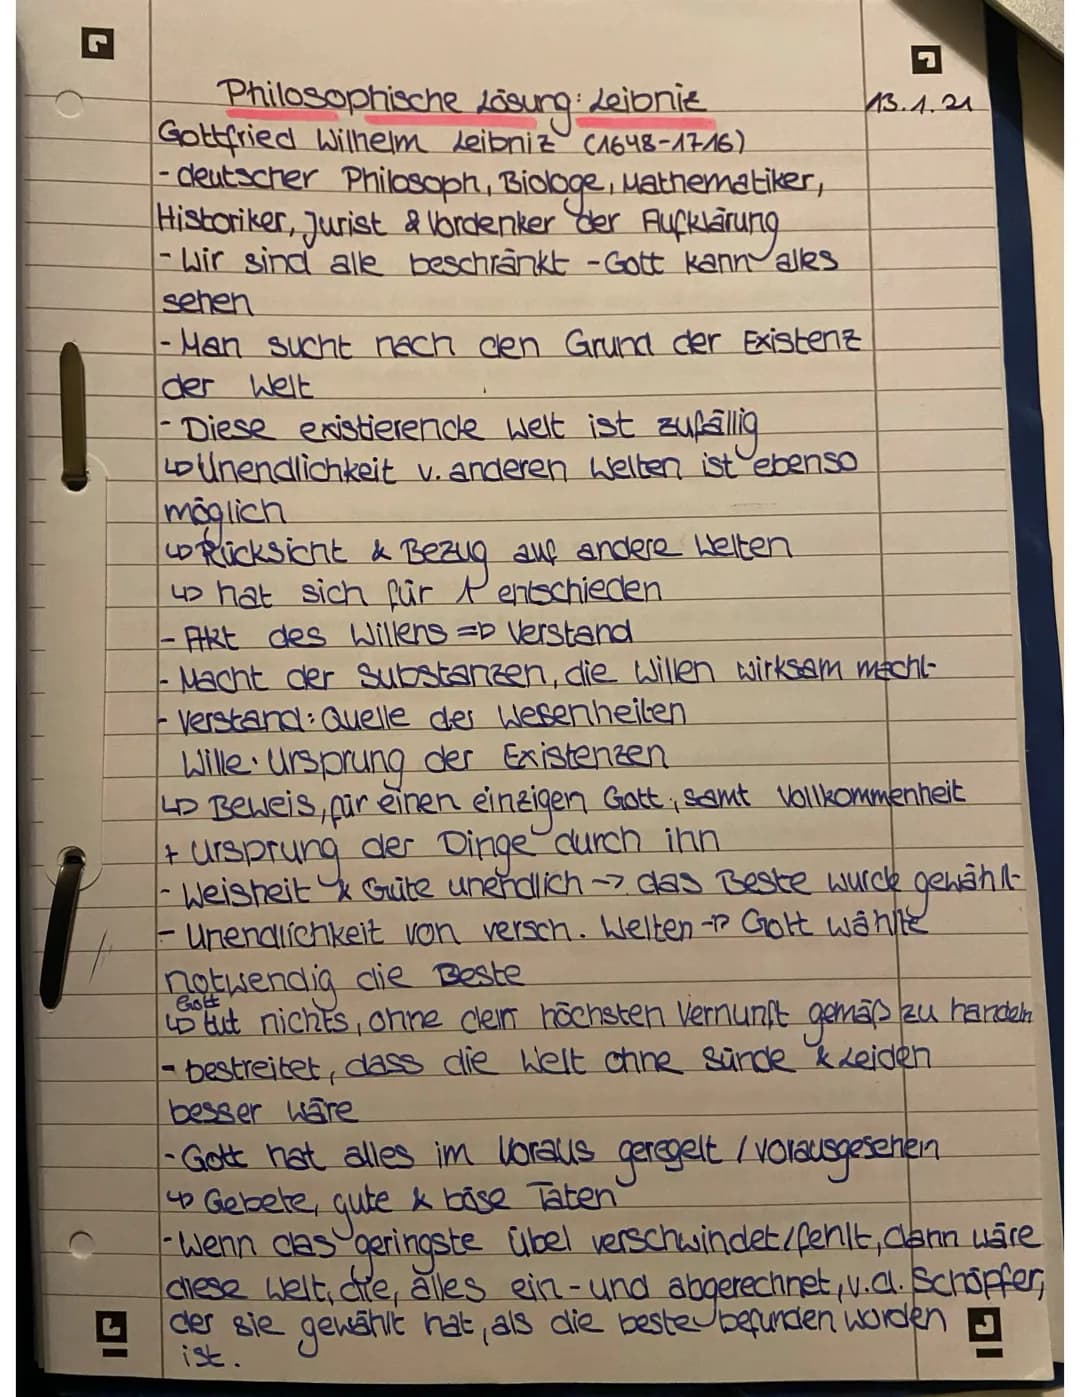 Philosophische Lösung: Leibniz
13.1.21
Gottfried Wilhelm Leibniz (1648-1716)
- deutscher Philosoph, Biologe, Mathematiker,
Historiker, Jurist & Vordenker der Aufklärung
- Wir sind alle beschränkt - Gott kann alles
sehen
- Man sucht nach den Grund der Existenz
der Welt
- Diese existierende Welt ist zufällig
↳ Unendlichkeit v. anderen Welten ist ebenso
möglich
↳ Rücksicht & Bezug auf andere Welten
↳ hat sich für 1 entschieden
- Akt des Willens => Verstand
- Macht der Substanzen, die Willen wirksam macht
- Verstand: Quelle der Wesenheiten
Wille: Ursprung der Existenzen
↳ Beweis, für einen einzigen Gott, samt Vollkommenheit
+ Ursprung der Dinge durch ihn
- Weisheit & Güte unendlich -> das Beste wurde gewählt
- Unendlichkeit von versch. Welten -> Gott wählte
notwendig die Beste
Gott
↳ tut nichts, ohne dem höchsten Vernunft gemäß zu handeln
- bestreitet, dass die Welt ohne Sünde & Leiden
besser wäre
- Gott hat alles im Voraus geregelt / vorausgesehen
↳ Gebete, gute & böse Taten
- Wenn das geringste Übel verschwindet/fehlt, dann wäre
diese Welt, die, alles ein- und abgerechnet, v.d. Schöpfer,
der sie gewählt hat, als die beste befunden worden
ist.